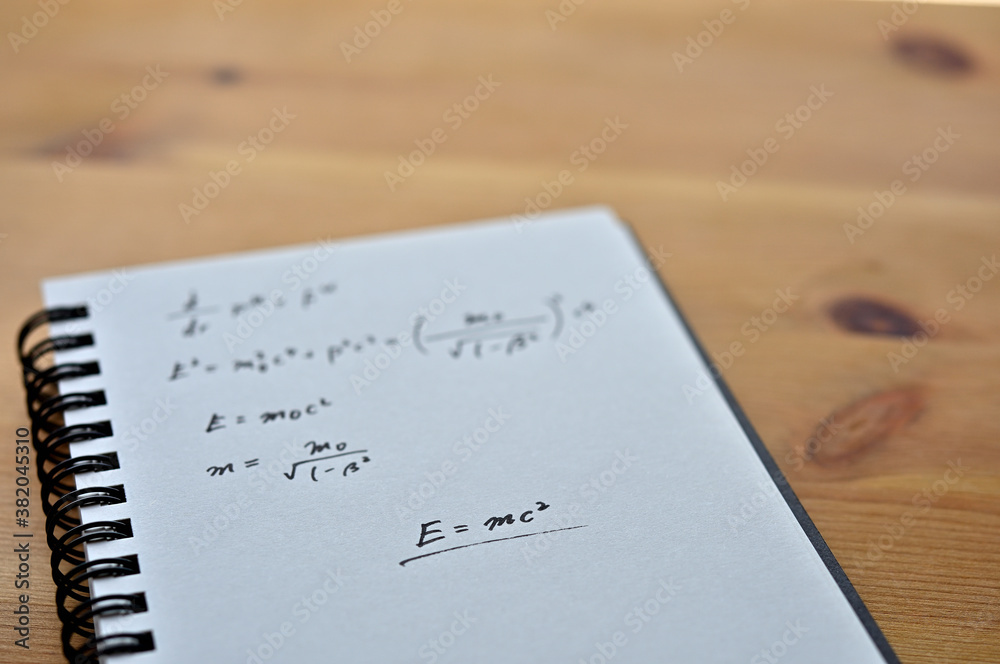 E² = m₀²c⁴ + p²c² = (m₀/√(1-β²))² c⁴
E = m₀c²
m = m₀/√(1-β²)
E = mc²
Adobe Stock | #382045310